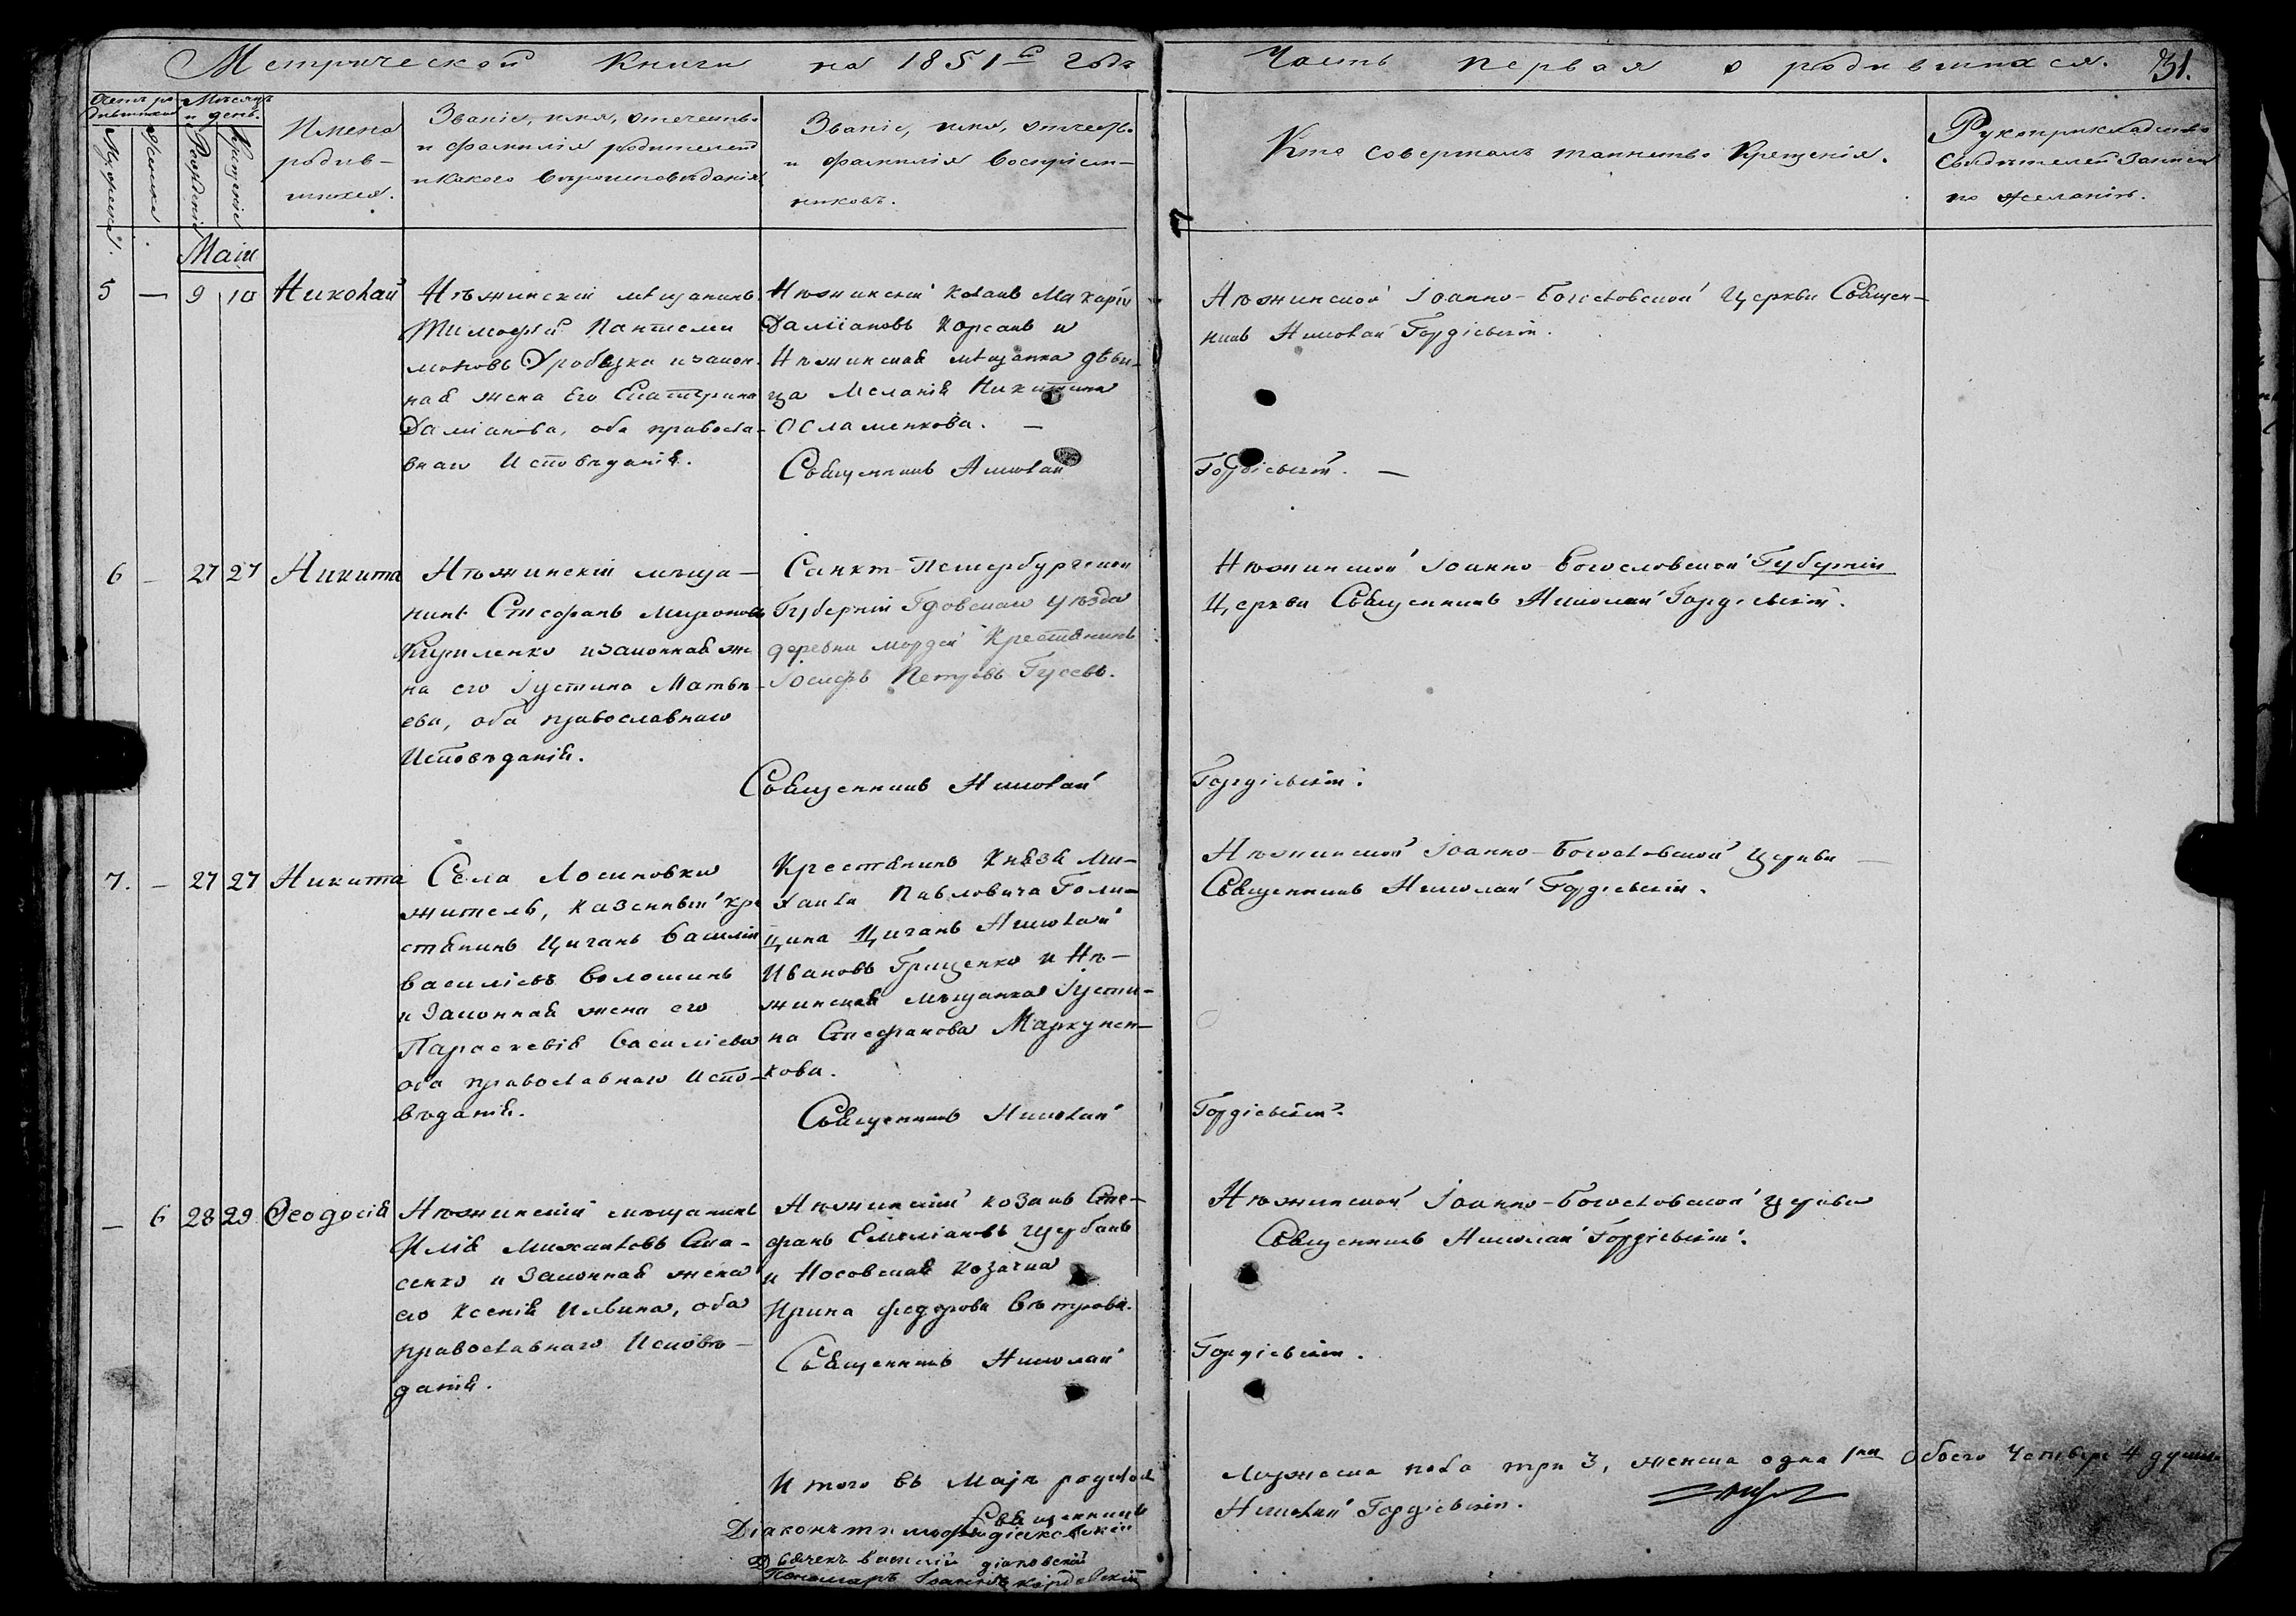 Метрической Книги на 1851й годъ
Часть первая о родившихся. 31.
Счетъ ро- Мѣсяцъ
дившихся и день.
Мужеска. Женска Рожденія Крещенія
Имена
родив-
шихся.
Званіе, имя, отечество
и фамилія родителей
и какого вѣроисповѣданія
Званіе, имя, отчеств.
и фамилія воспріем-
никовъ.
Кто совершалъ таинство Крещенія.
Рукоприкладство
Свидѣтелей Записи
по желанію.
Маій
5 — 9 10 Николай
Нѣжинскій мѣщанинъ
Тимофей Пантелеи
моновъ и закон
ная жена его Екатерина
Даміанова, оба правосла-
внаго Исповѣданія.
Нѣжинскій Козакъ Макарій
Даміановъ Корсакъ и
Нѣжинская мѣщанка дѣви-
ца Меланія Никитина
Осламенкова. —
Священникъ Николай
Нѣжинской Іоанно-Богословской Церкви Священ-
никъ Николай Гордіевскій.
Гордіевскій. —
6 — 27 27 Никита
Нѣжинскій мѣща-
нинъ Стефанъ Мироновъ
и законная же
на его Іустина Матвѣ-
ева, оба православнаго
Исповѣданія.
Санкт-Петербургской
Губерніи Гдовскаго уѣзда
деревни Мордей Крестянинъ
Іосифъ Петровъ Гусевъ.
Священникъ Николай
Нѣжинской Іоанно-Богословской Губерніи
Церкви Священникъ Николай Гордіевскій.
Гордіевскій.
7. — 27 27 Никита
Села Лосиновки
житель, казенный кре
стянинъ Циганъ Василій
Василіевъ Волошинъ
и Законная жена его
Параскевія Василіева
оба православнаго Испо-
вѣданія.
Крестянинъ Князя Ми-
хаила Павловича Голи-
цина Циганъ Николай
Ивановъ Грищенко и Нѣ-
жинская мѣщанка Іусти-
на Стефанова Маркунен-
кова.
Священникъ Николай
Нѣжинской Іоанно-Богословской Церкви —
Священникъ Николай Гордіевскій.
Гордіевскій.
— 6 28 29 Ѳеодосія
Нѣжинскій мѣщанинъ
Илія Михаиловъ Ста-
сенко и Законная жена
его Ксенія Ильина, оба
православнаго Исповѣ-
данія.
Нѣжинскій козакъ Сте-
фанъ Емиліановъ Щербакъ
и Носовская козачка
Ирина Федорова Вѣтрова.
Священникъ Николай
Нѣжинской Іоанно-Богословской церкви
Священникъ Николай Гордіевскій.
Гордіевскій.
И того въ Маіѣ родилося
Мужеска пола три 3, женска одна 1на Обоего Четыре 4 души
Священникъ
Николай Гордіевскій.
Діаконъ Тимофей Діаковскій
Дьячекъ Василій Діаковскій
Пономаръ Іоаннъ